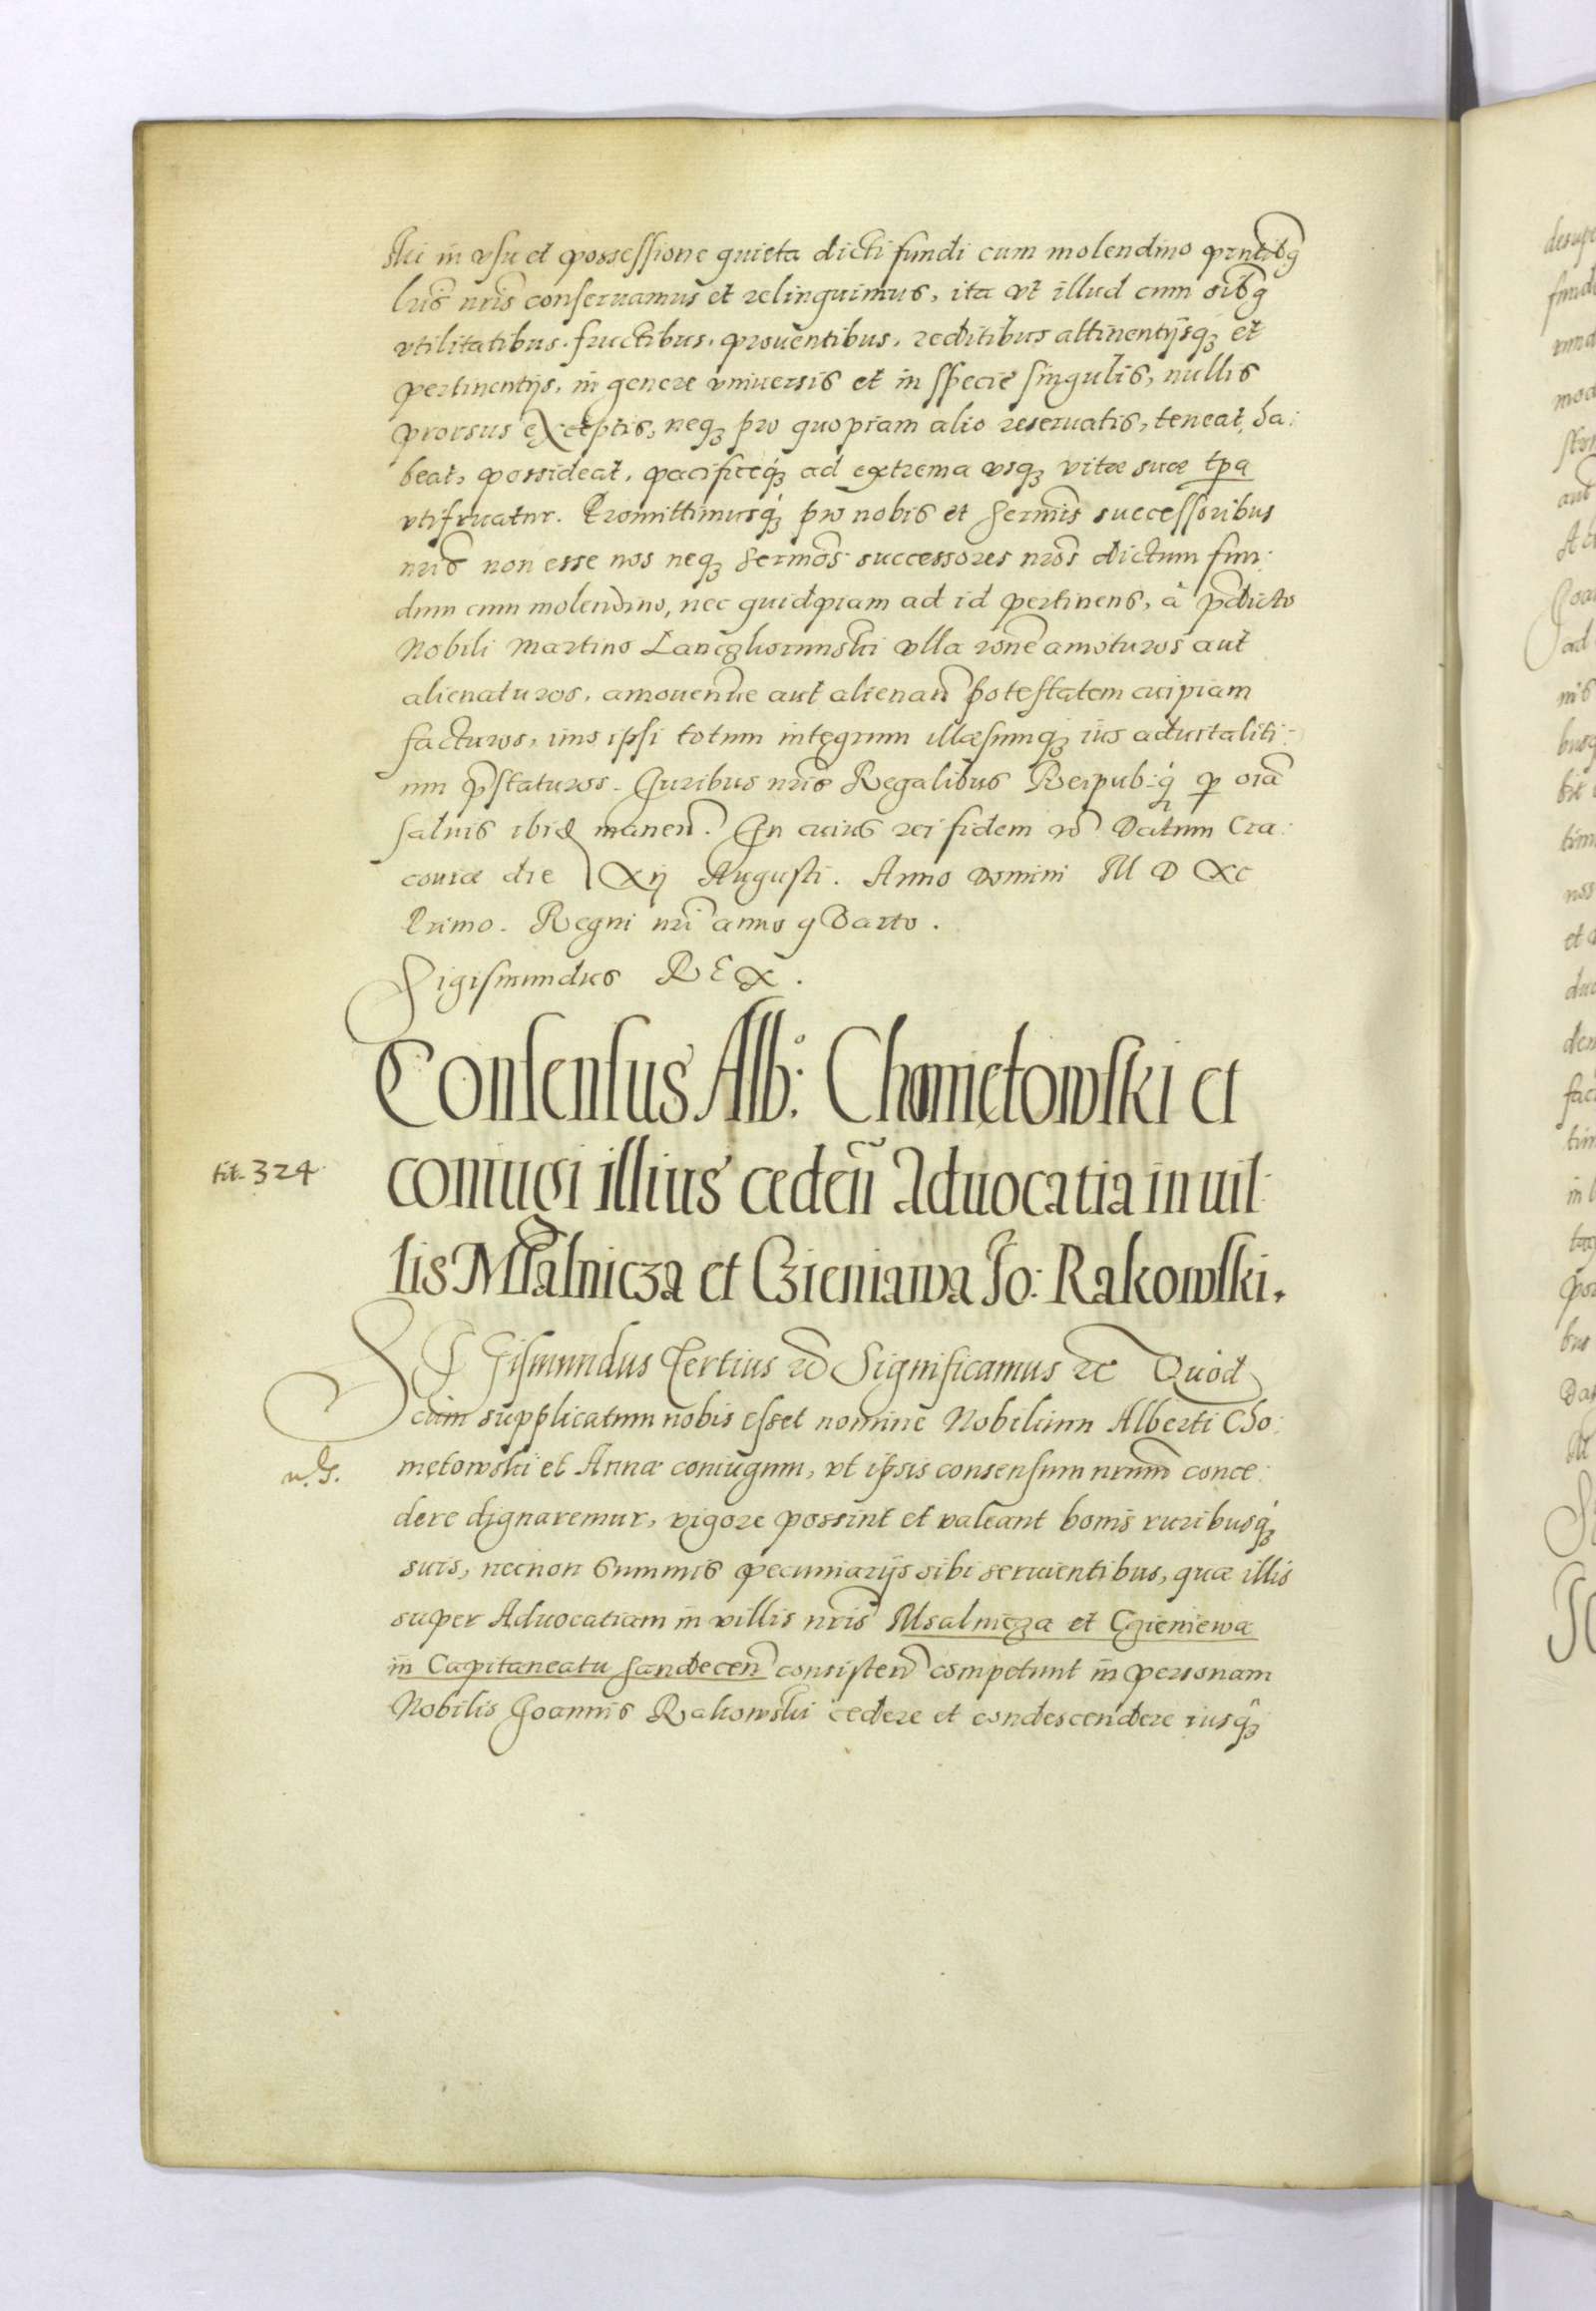 ski in vsu et possessione quieta dicti fundi cum molendino prntibq
lris nris conseruamus et relinquimus, ita vt illud cum oibq
vtilitatibus. fructibus, prouentibus, reditibus attinentijsq3 et
pertinentijs, in genere vniuersis et in specie singulis, nullis
prorsus exceptis, neq3 pro quopiam alio reseruatis, teneat, ha:
beat, possideat, pacificeq3 ad extrema vsq3 vitæ suæ tpa
vtifruatur. Promittimusq3 pro nobis et Sermis successoribus
nris non esse nos neq3 sermos successores nros dictum fun:
dum cum molendino, nec quidpiam ad id pertinens, à pdicto
Nobili Martino ulla rone amoturos aut
alienaturos, amouendiue aut alienandi potestatem cuipiam
facturos, imo ipsi totum integrum illæsumq3 ius aduitaliti:
um pstaturos. Iuribus nris Regalibus Reipub:q3 p oia
saluis ibid manen. In cuius rei fidem rc Datum Cra:
couiæ die Xij Augusti. Anno Domini M D XC
Primo. Regni nri anno qVarto.
Sigismundus REX.
Consensus Alb: Chomętowski et
coniugi illius ceden aduocatia in uil
lis Msalnicza et Czieniawa Jo: Rakowski.
fit. 324
SIGismundus Tertius rc Significamus rc Quod
cum supplicatum nobis esset nomine Nobilium Alberti Cho:
mętowski et Annæ coniugum, vt ipsis consensum nrum conce:
dere dignaremur, vigore possint et valeant bonis iuribusq3
suis, necnon summis pecuniarijs sibi seruientibus, quæ illis
super Aduocatiam in villis nris Msalnicza et Czieniewa
in Capitaneatu Sandecen consisten competunt in personam
Nobilis Joannis Rakowski cedere et condescendere iusq3